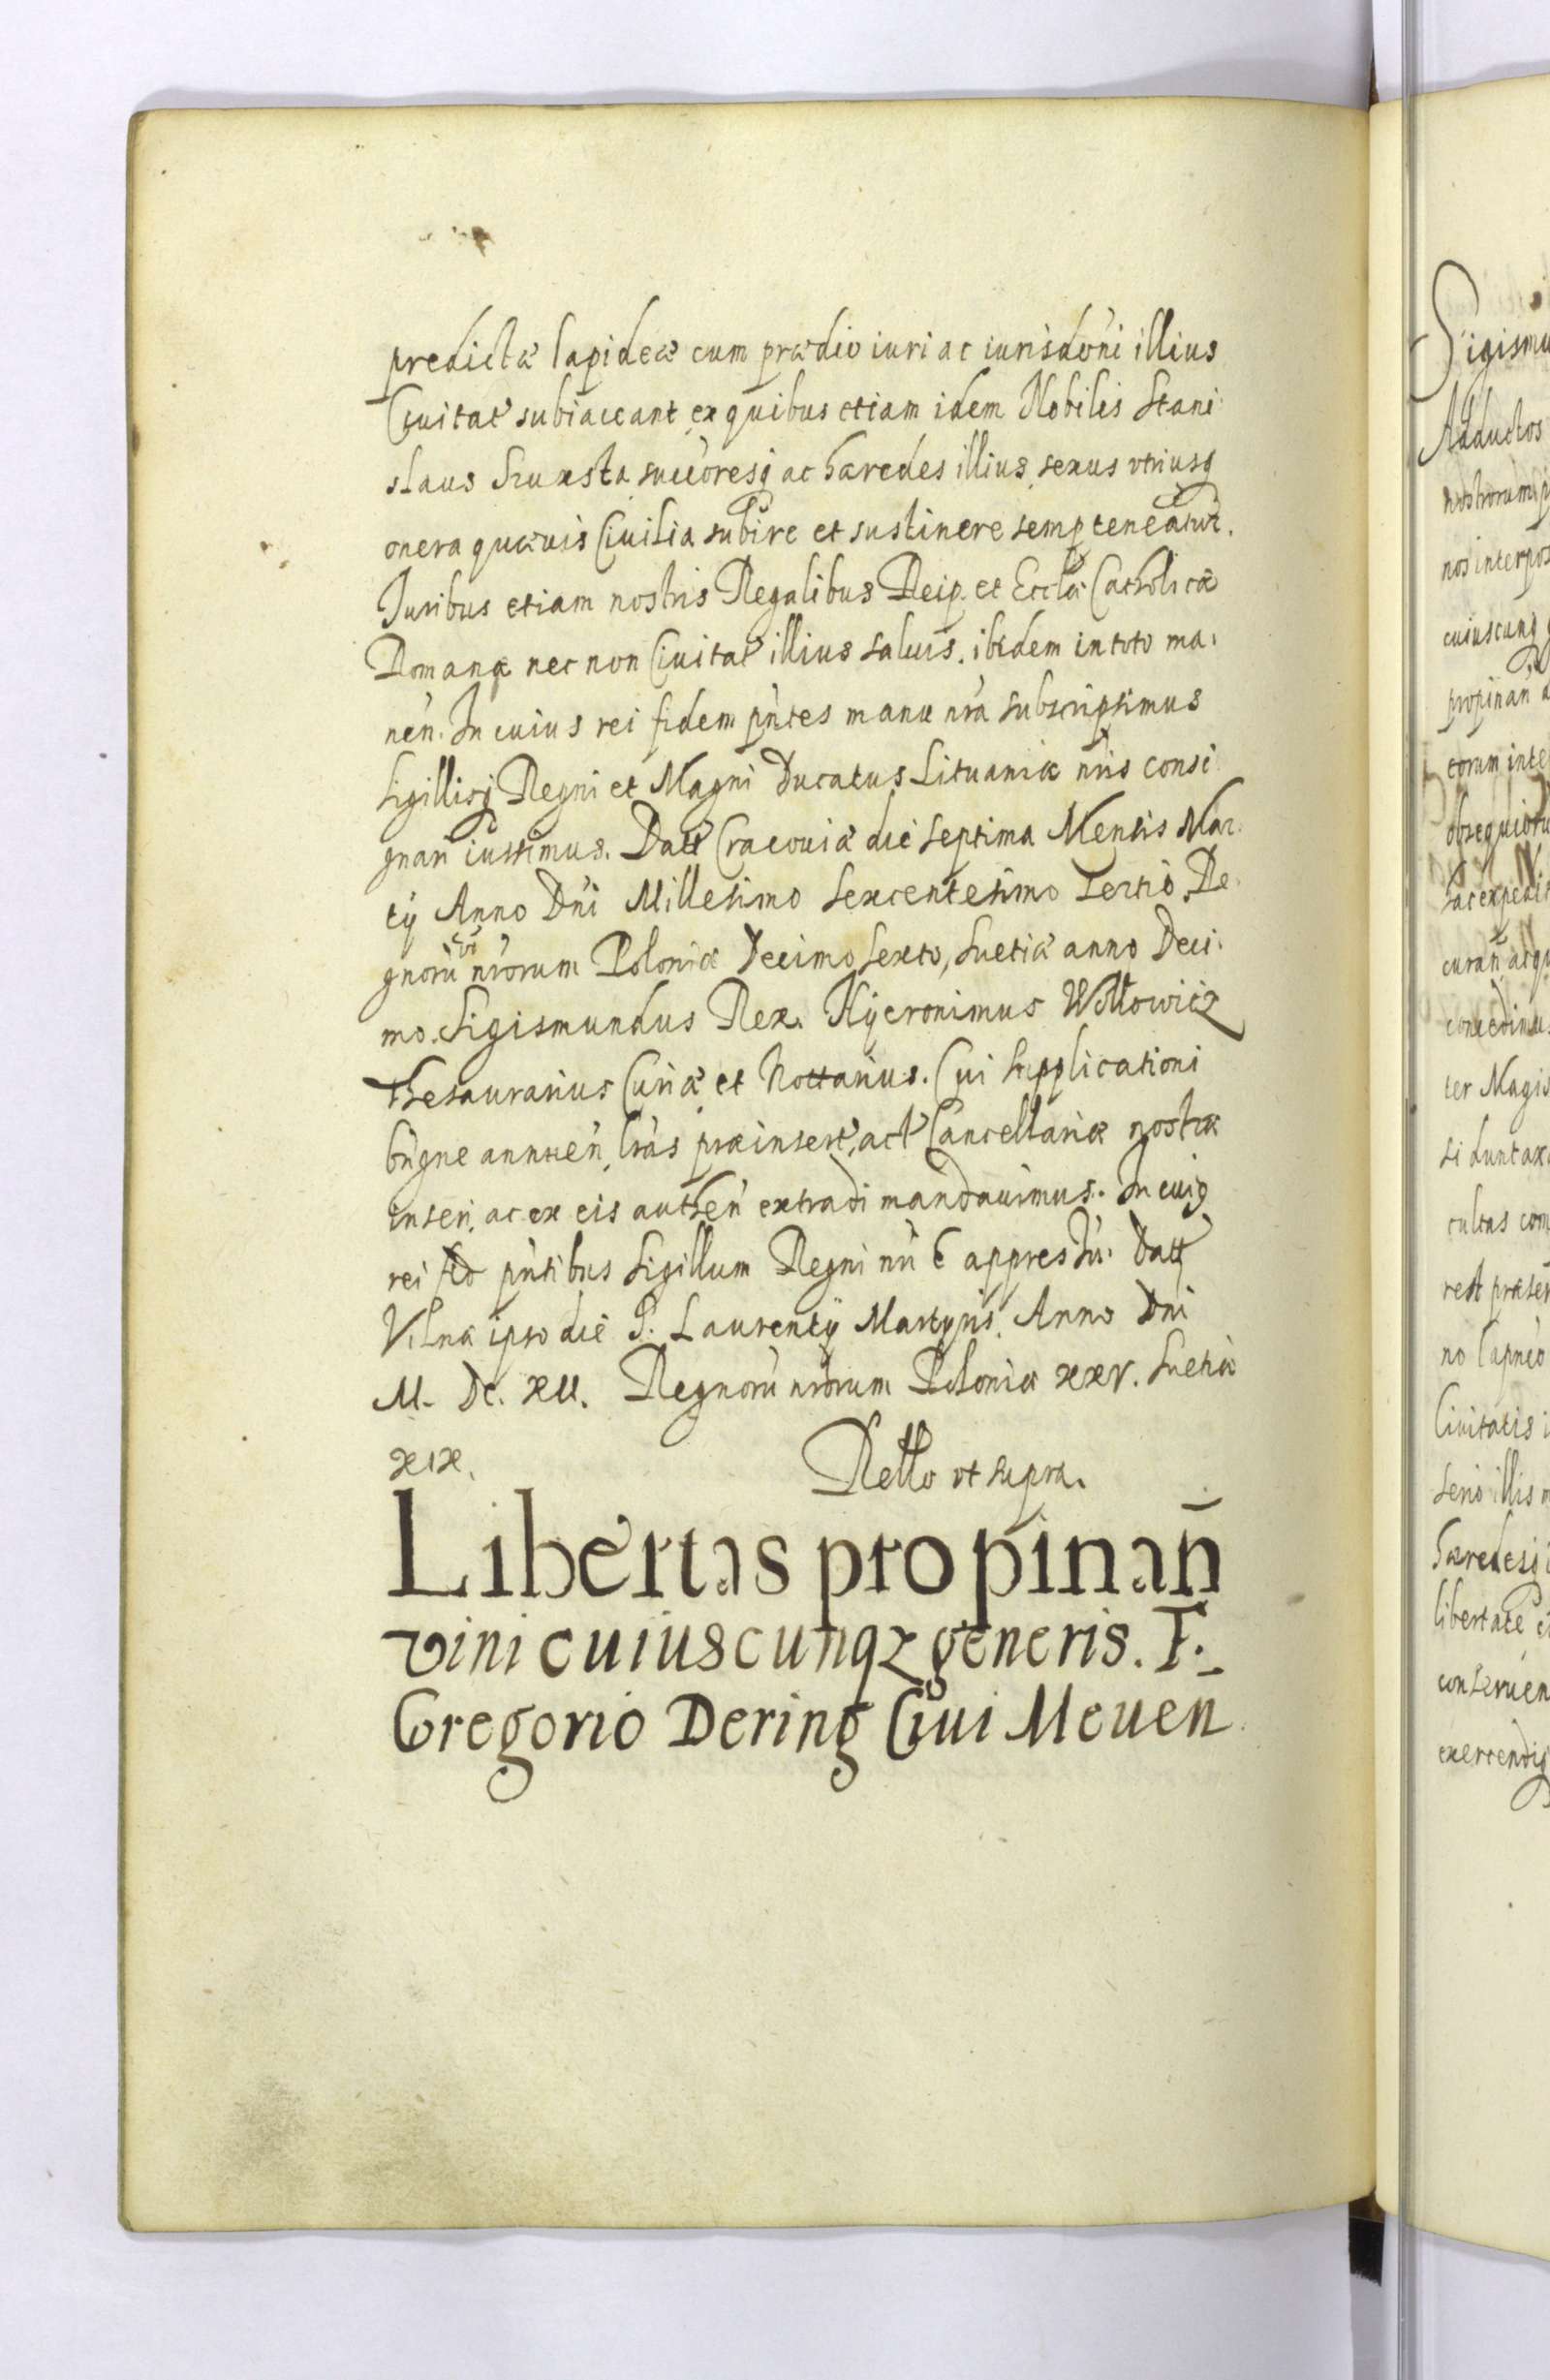 predictæ lapideæ cum prædio iuri ac iurisdōni illius
Ciuitat̃ subiaceant, ex quibus etiam idem Nobilis Stani
slaus succ̃oresq ac hæredes illius sexus vtriusq
onera quævis Ciuilia subire et sustinere semp teneãtur.
Juribus etiam nostris Regalibus Reip. et Eccl̃æ Catholicæ
Romanæ nec non Ciuitat̃ illius saluis, ibidem in toto ma
neñ. In cuius rei fidem pñtes manu nr̃a subscripsimus
Sigillisq Regni et Magni Ducatus Lituaniæ nr̃is consi
gnari iussimus. Datt̃ Cracouiæ die septima Mensis Mar
tij Anno Dñi Millesimo Sexcentesimo Tertio, Re
gnorũ vo nr̃orum Poloniæ Decimo Sexto, Suetiæ anno Deci
mo. Sigismundus Rex. Hyeronimus Wollowicz
Thesaurarius Curiæ et Nottarius. Cui supplicationi
bñgne annueñ, lr̃as præinsert̃, act̃ Cancellariæ nostræ
inseri, ac ex eis autheñ extradi mandauimus. In cuiq
rei fid pñtibus Sigillum Regni nr̃i ẽ appressũ. Datt̃
Vilnæ ipso die S. Laurentij Martyris, Anno Dñi
M. DC. XII. Regnorũ nr̃orum Poloniæ XXV. Suetiæ
XIX. Rello vt supra.
Libertas propinañ
vini cuiuscunqz generis. F.
Gregorio Dering Ciui Meueñ
Sigismu
Adductos
nos interpos
propinañ
eorum inte
obsequioru
concedimus
ter Magis
si duntaxa
cultas com
Ciuitatis i
serio illis
hæredesq
libertate et
conseruen
exercendis